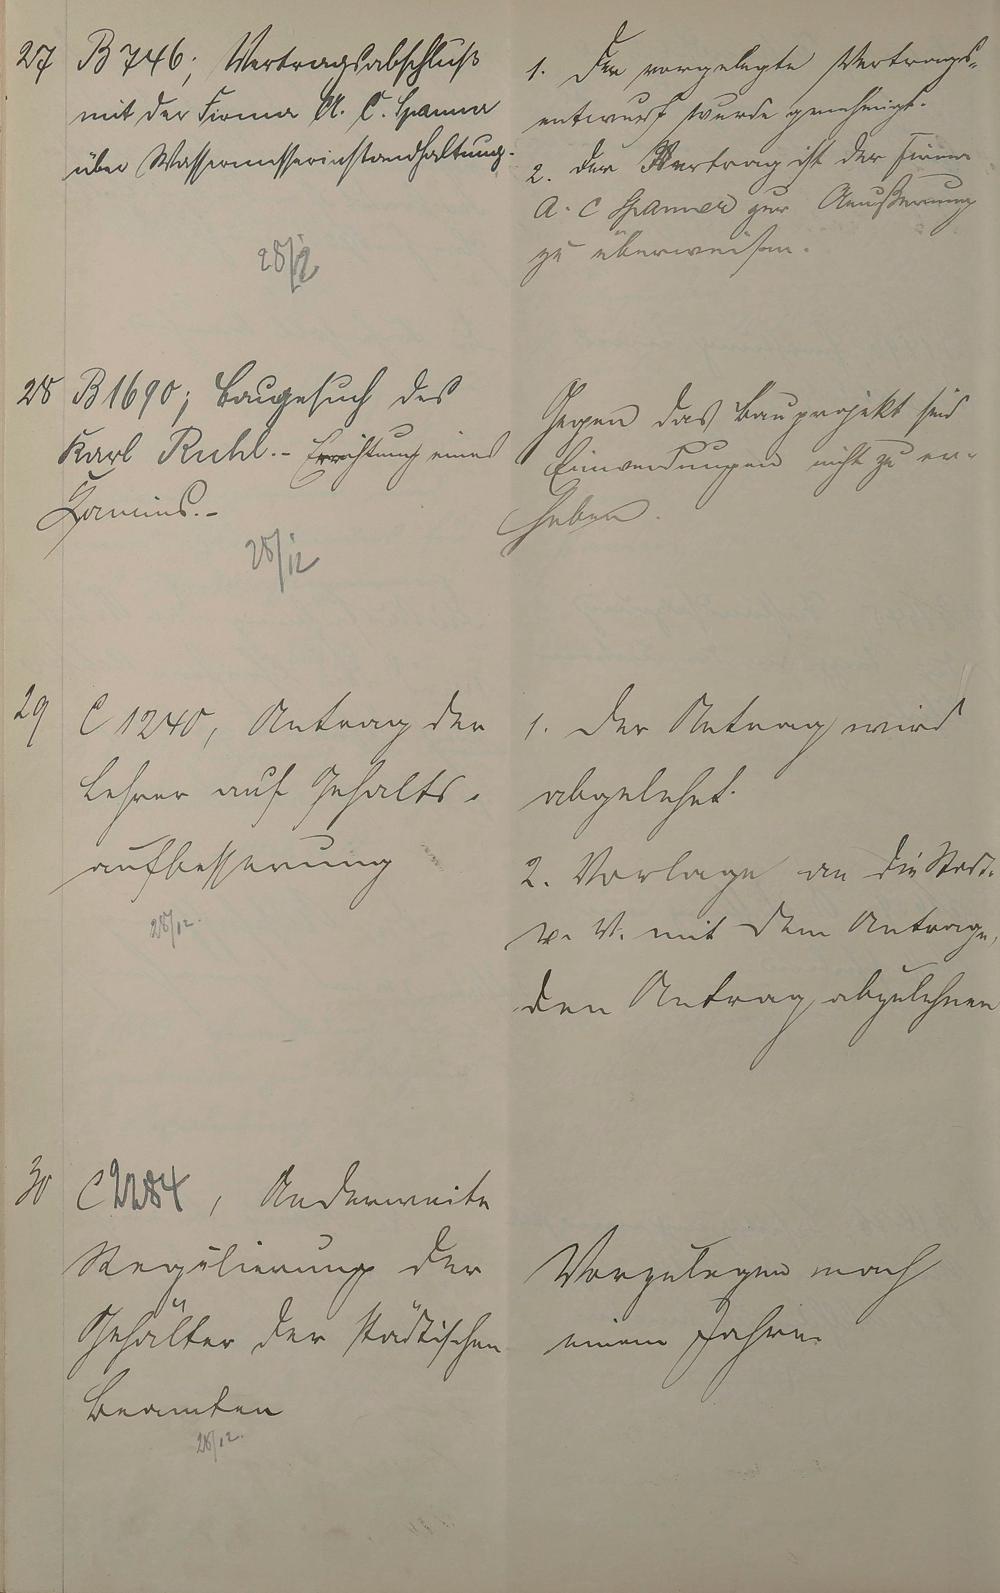 27 B 746; Vertragsabschluß
mit der Firma A. C. Spanner
über Wassermesserinstandhaltung.
28/12
1. Der vorgelegte Vertrags-
entwurf wurde genehmigt.
2. Der Vertrag ist der Firma
A. C Spanner zur Aeußerung
zu überweisen.
28 B 1690; Baugesuch des
Karl Ruhl. - Errichtung eines
Kamins. -
28/12
Gegen das Bauprojekt sind
Einwendungen nicht zu er-
heben.
29 C 1240, Antrag der
Lehrer auf Gehalts-
aufbesserung
28/12.
1. Der Antrag wird
abgelehnt.
2. Vorlage an die Stadt.
v. V. mit dem Antrage,
den Antrag abzulehnen
30 C 2284, Anderweite
Regulierung der
Gehälter der städtischen
Beamten
28/12.
Vorzulegen nach
einem Jahre.